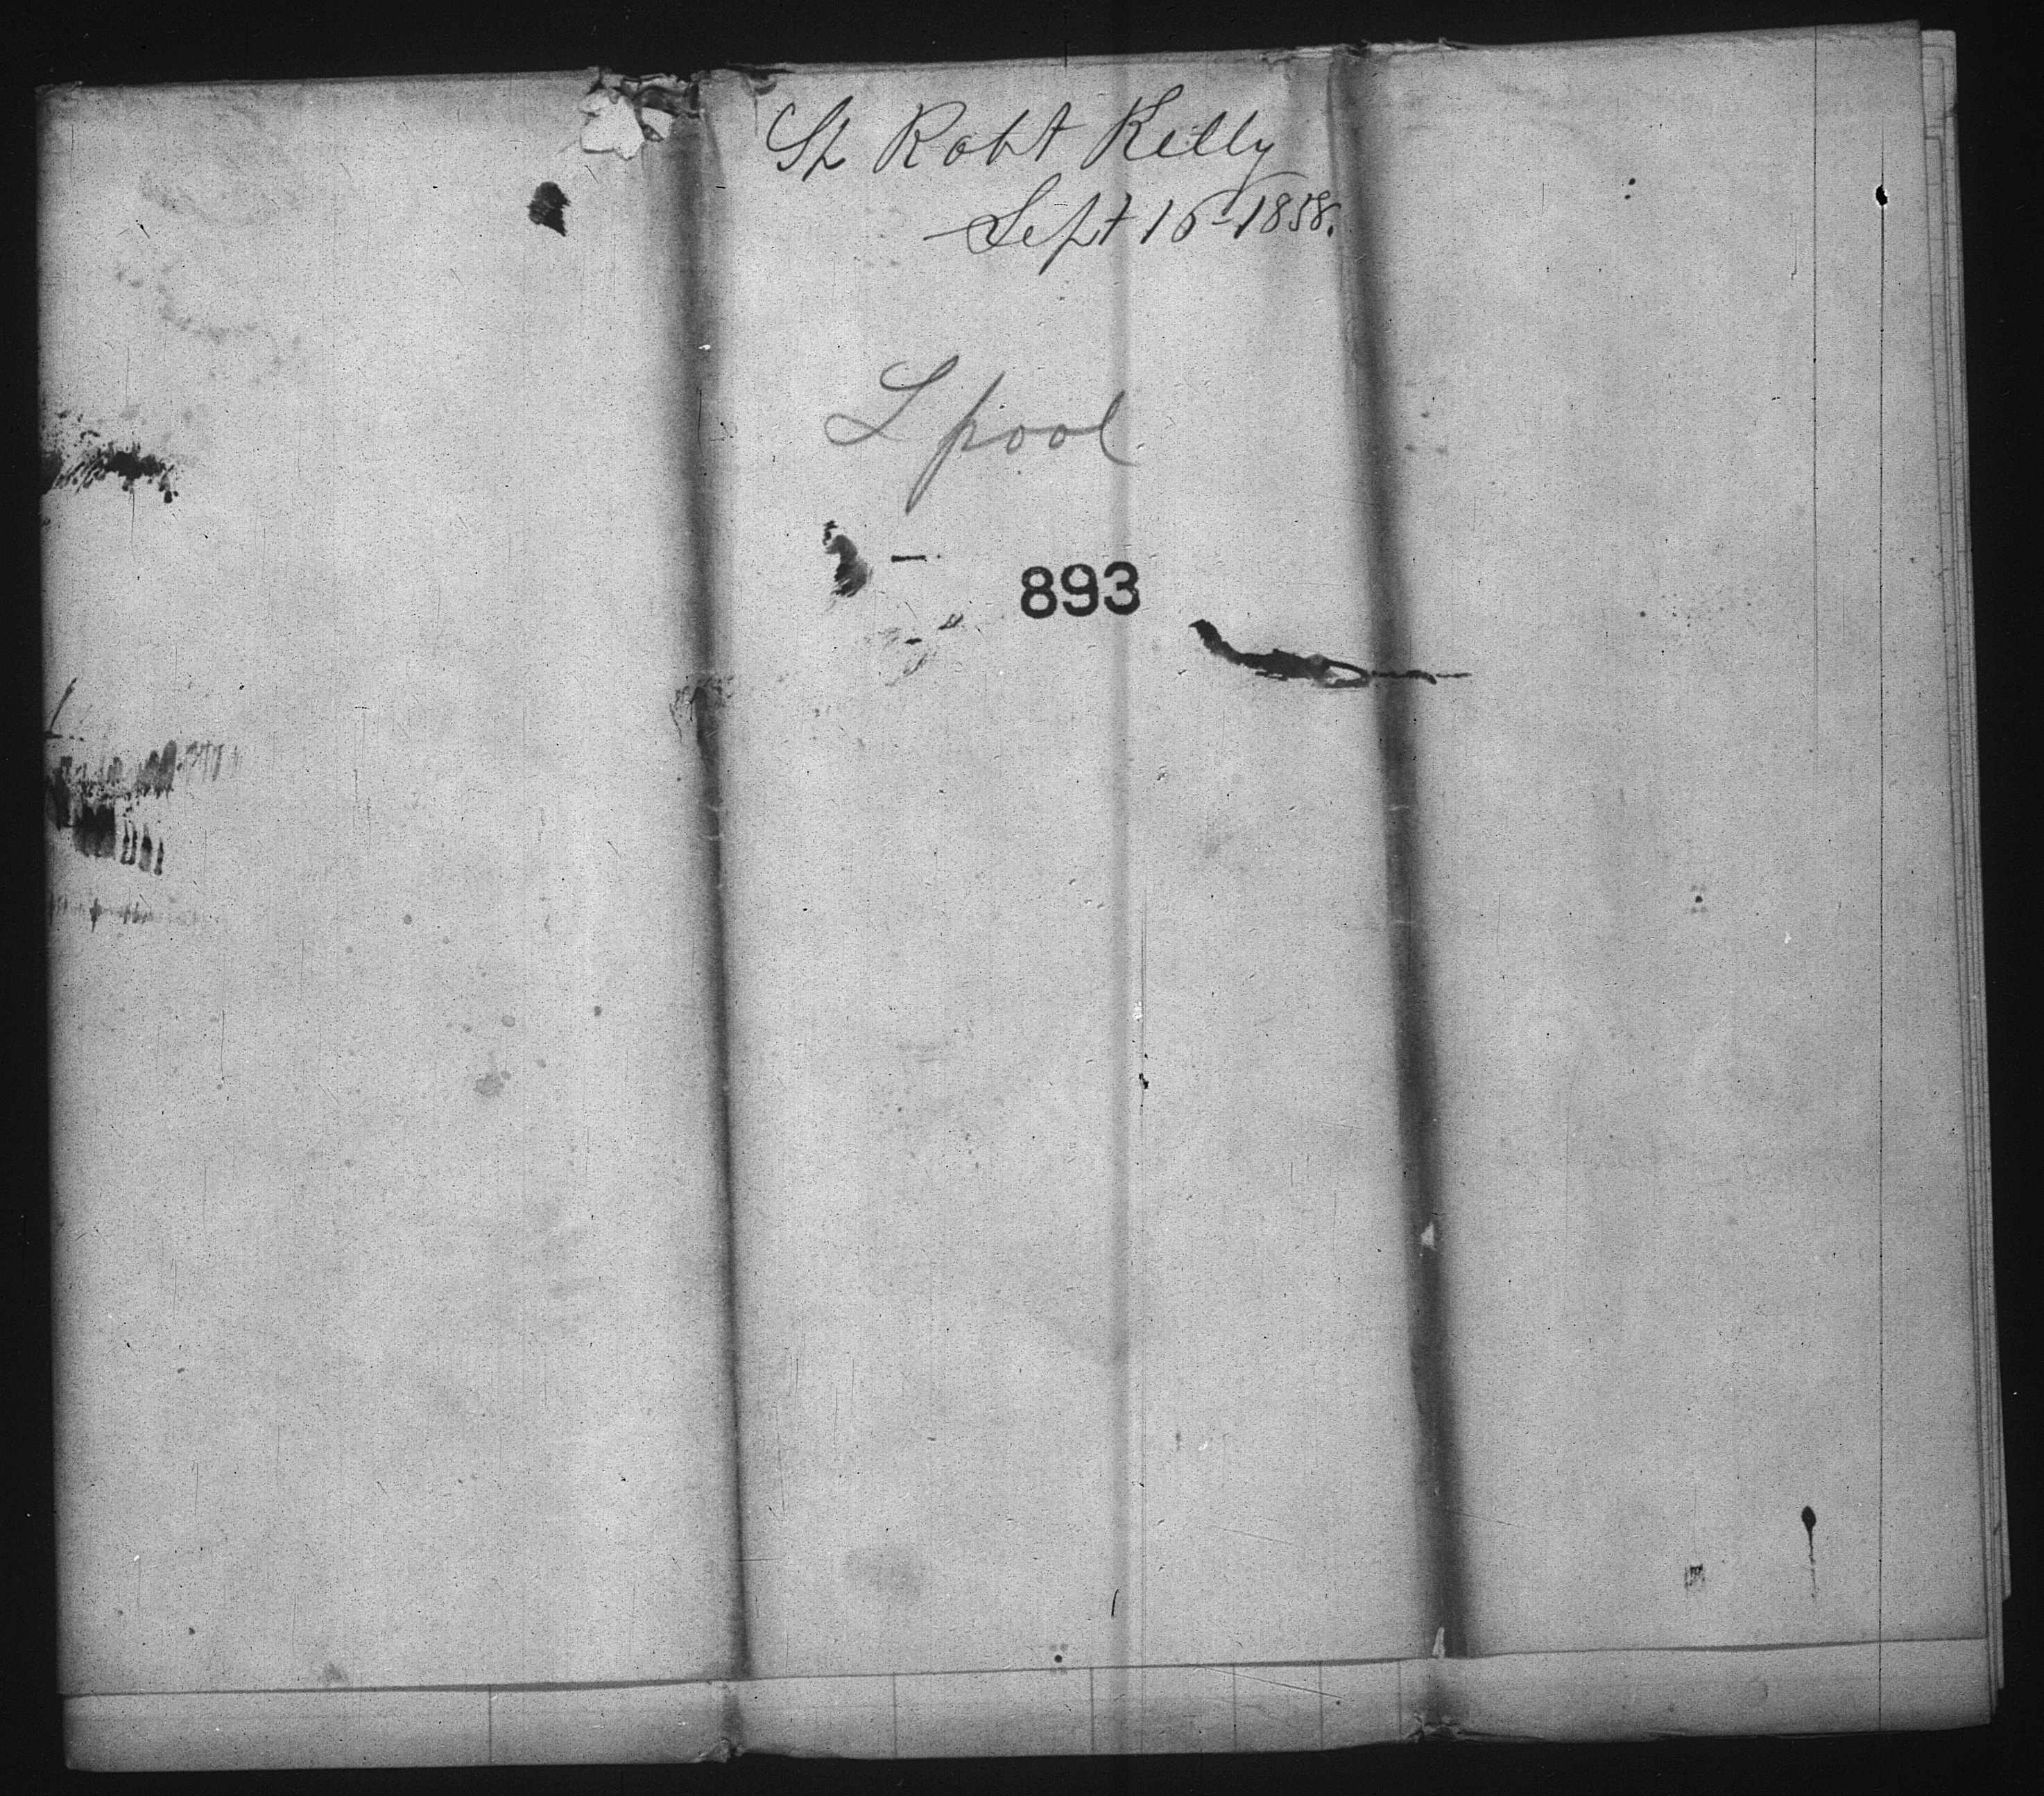 Sh Robt Kelly
Sept 16-1858.
L pool
893